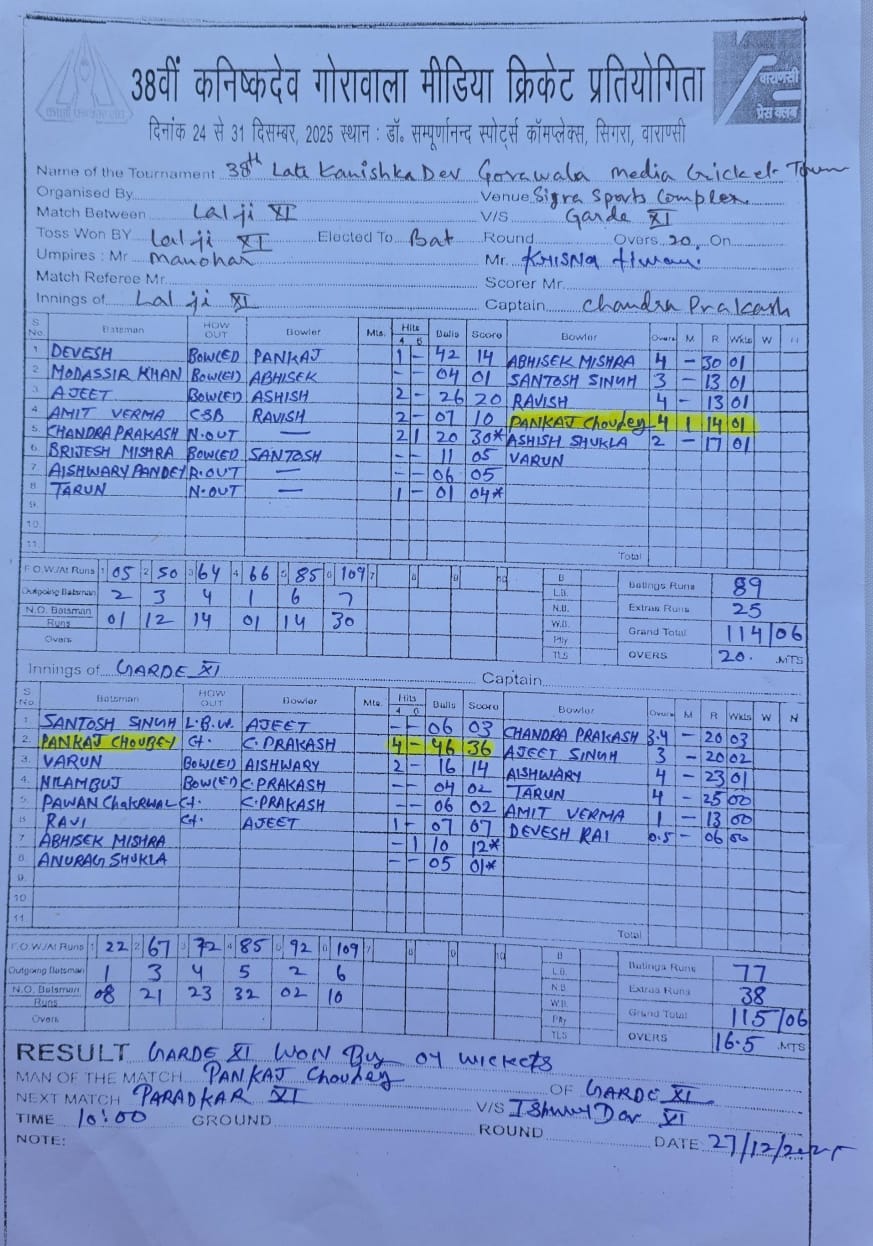 38वीं कनिष्कदेव गोरावाला मीडिया क्रिकेट प्रतियोगिता
वाराणसी
प्रेस क्लब
दिनांक 24 से 31 दिसम्बर, 2025 स्थान : डॉ. सम्पूर्णानन्द स्पोर्ट्स कॉम्प्लेक्स, सिगरा, वाराणसी
Name of the Tournament 38th Late Kanishka Dev Gorawala Media Cricket Tourn
Organised By Venue Sigra Sports Complex
Match Between Lalji XI V/S Garde XI
Toss Won BY Lalji XI Elected To Bat Round Overs 20, On
Umpires : Mr Manohar Mr. KHISNA
Match Referee Mr. Scorer Mr.
Innings of Lalji XI Captain Chandra Prakash
S No. Batsman HOW OUT Bowler Mts. Hits 4 6 Balls Score Bowler Overs M R Wkts W N
1. DEVESH Bow(ED PANKAJ 1 - 42 14 ABHISEK MISHRA 4 - 30 01
2. MODASSIR KHAN Bow(ED ABHISEK - - 04 01 SANTOSH SINGH 3 - 13 01
3. AJEET Bow(ED ASHISH 2 - 26 20 RAVISH 4 - 13 01
4. AMIT VERMA C&B RAVISH 2 - 07 10 PANKAJ Choubey 4 1 14 01
5. CHANDRA PRAKASH N.OUT — 2 1 20 30* ASHISH SHUKLA 2 - 17 01
6. BRIJESH MISHRA Bow(ED SANTOSH - - 11 05 VARUN
7. AISHWARY PANDEY R.OUT — - - 06 05
8 TARUN N.OUT — 1 - 01 04*
9.
10.
11. Total
F.O.W./At Runs 1 05 2 50 3 64 4 66 5 85 6 109 7 8 9 10 B Batings Runs 89
Outgoing Batsman 2 3 4 1 6 7 L.B. Extras Runs 25
N.O. Batsman Runs 01 12 14 01 14 30 N.B. W.B. Grand Total 114/06
Overs Plty TLS OVERS 20. .MTS
Innings of GARDE XI Captain
S No. Batsman HOW OUT Bowler Mts. Hits 4 6 Balls Score Bowler Overs M R Wkts W N
1. SANTOSH SINGH L.B.W. AJEET - - 06 03 CHANDRA PRAKASH 3.4 - 20 03
2. PANKAJ CHOUBEY Ct. C.PRAKASH 4 - 46 36 AJEET SINGH 3 - 20 02
3. VARUN Bow(ED AISHWARY 2 - 16 14 AISHWARY 4 - 23 01
4. NILAMBUJ Bow(ED C.PRAKASH - - 04 02 TARUN 4 - 25 00
5. PAWAN Chakrwal Ct. C.PRAKASH - - 06 02 AMIT VERMA 1 - 13 00
6 RAVI Ct. AJEET 1 - 07 07 DEVESH RAI 0.5 - 06 00
7 ABHISEK MISHRA - 1 10 12*
8 ANURAG SHUKLA - - 05 01*
9
10
11. Total
F.O.W./At Runs 1 22 2 67 3 72 4 85 5 92 6 109 7 8 9 10 B Batings Runs 77
Outgoing Batsman 1 3 4 5 2 6 L.B. Extras Runs 38
N.O. Batsman Runs 08 21 23 32 02 10 N.B. W.B. Grand Total 115/06
Overs Plty TLS OVERS 16.5 .MTS
RESULT GARDE XI WON By 04 wickets
MAN OF THE MATCH PANKAJ Choubey OF GARDE XI
NEXT MATCH PARADKAR XI V/S Ishwar Dev XI
TIME 10:00 GROUND ROUND DATE 27/12/2025
NOTE: